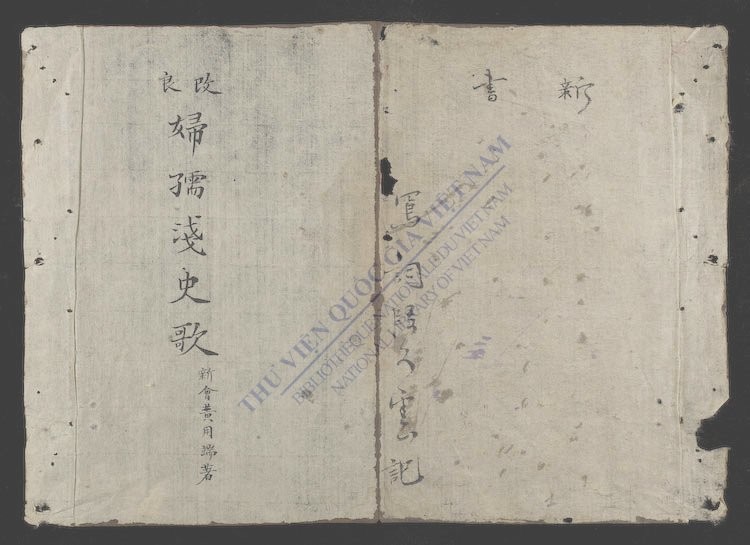 新書
改良
婦孺淺史歌
新會黃周端著
THƯ VIỆN QUỐC GIA VIỆT NAM
BIBLIOTHÈQUE NATIONALE DU VIETNAM
NATIONAL LIBRARY OF VIETNAM